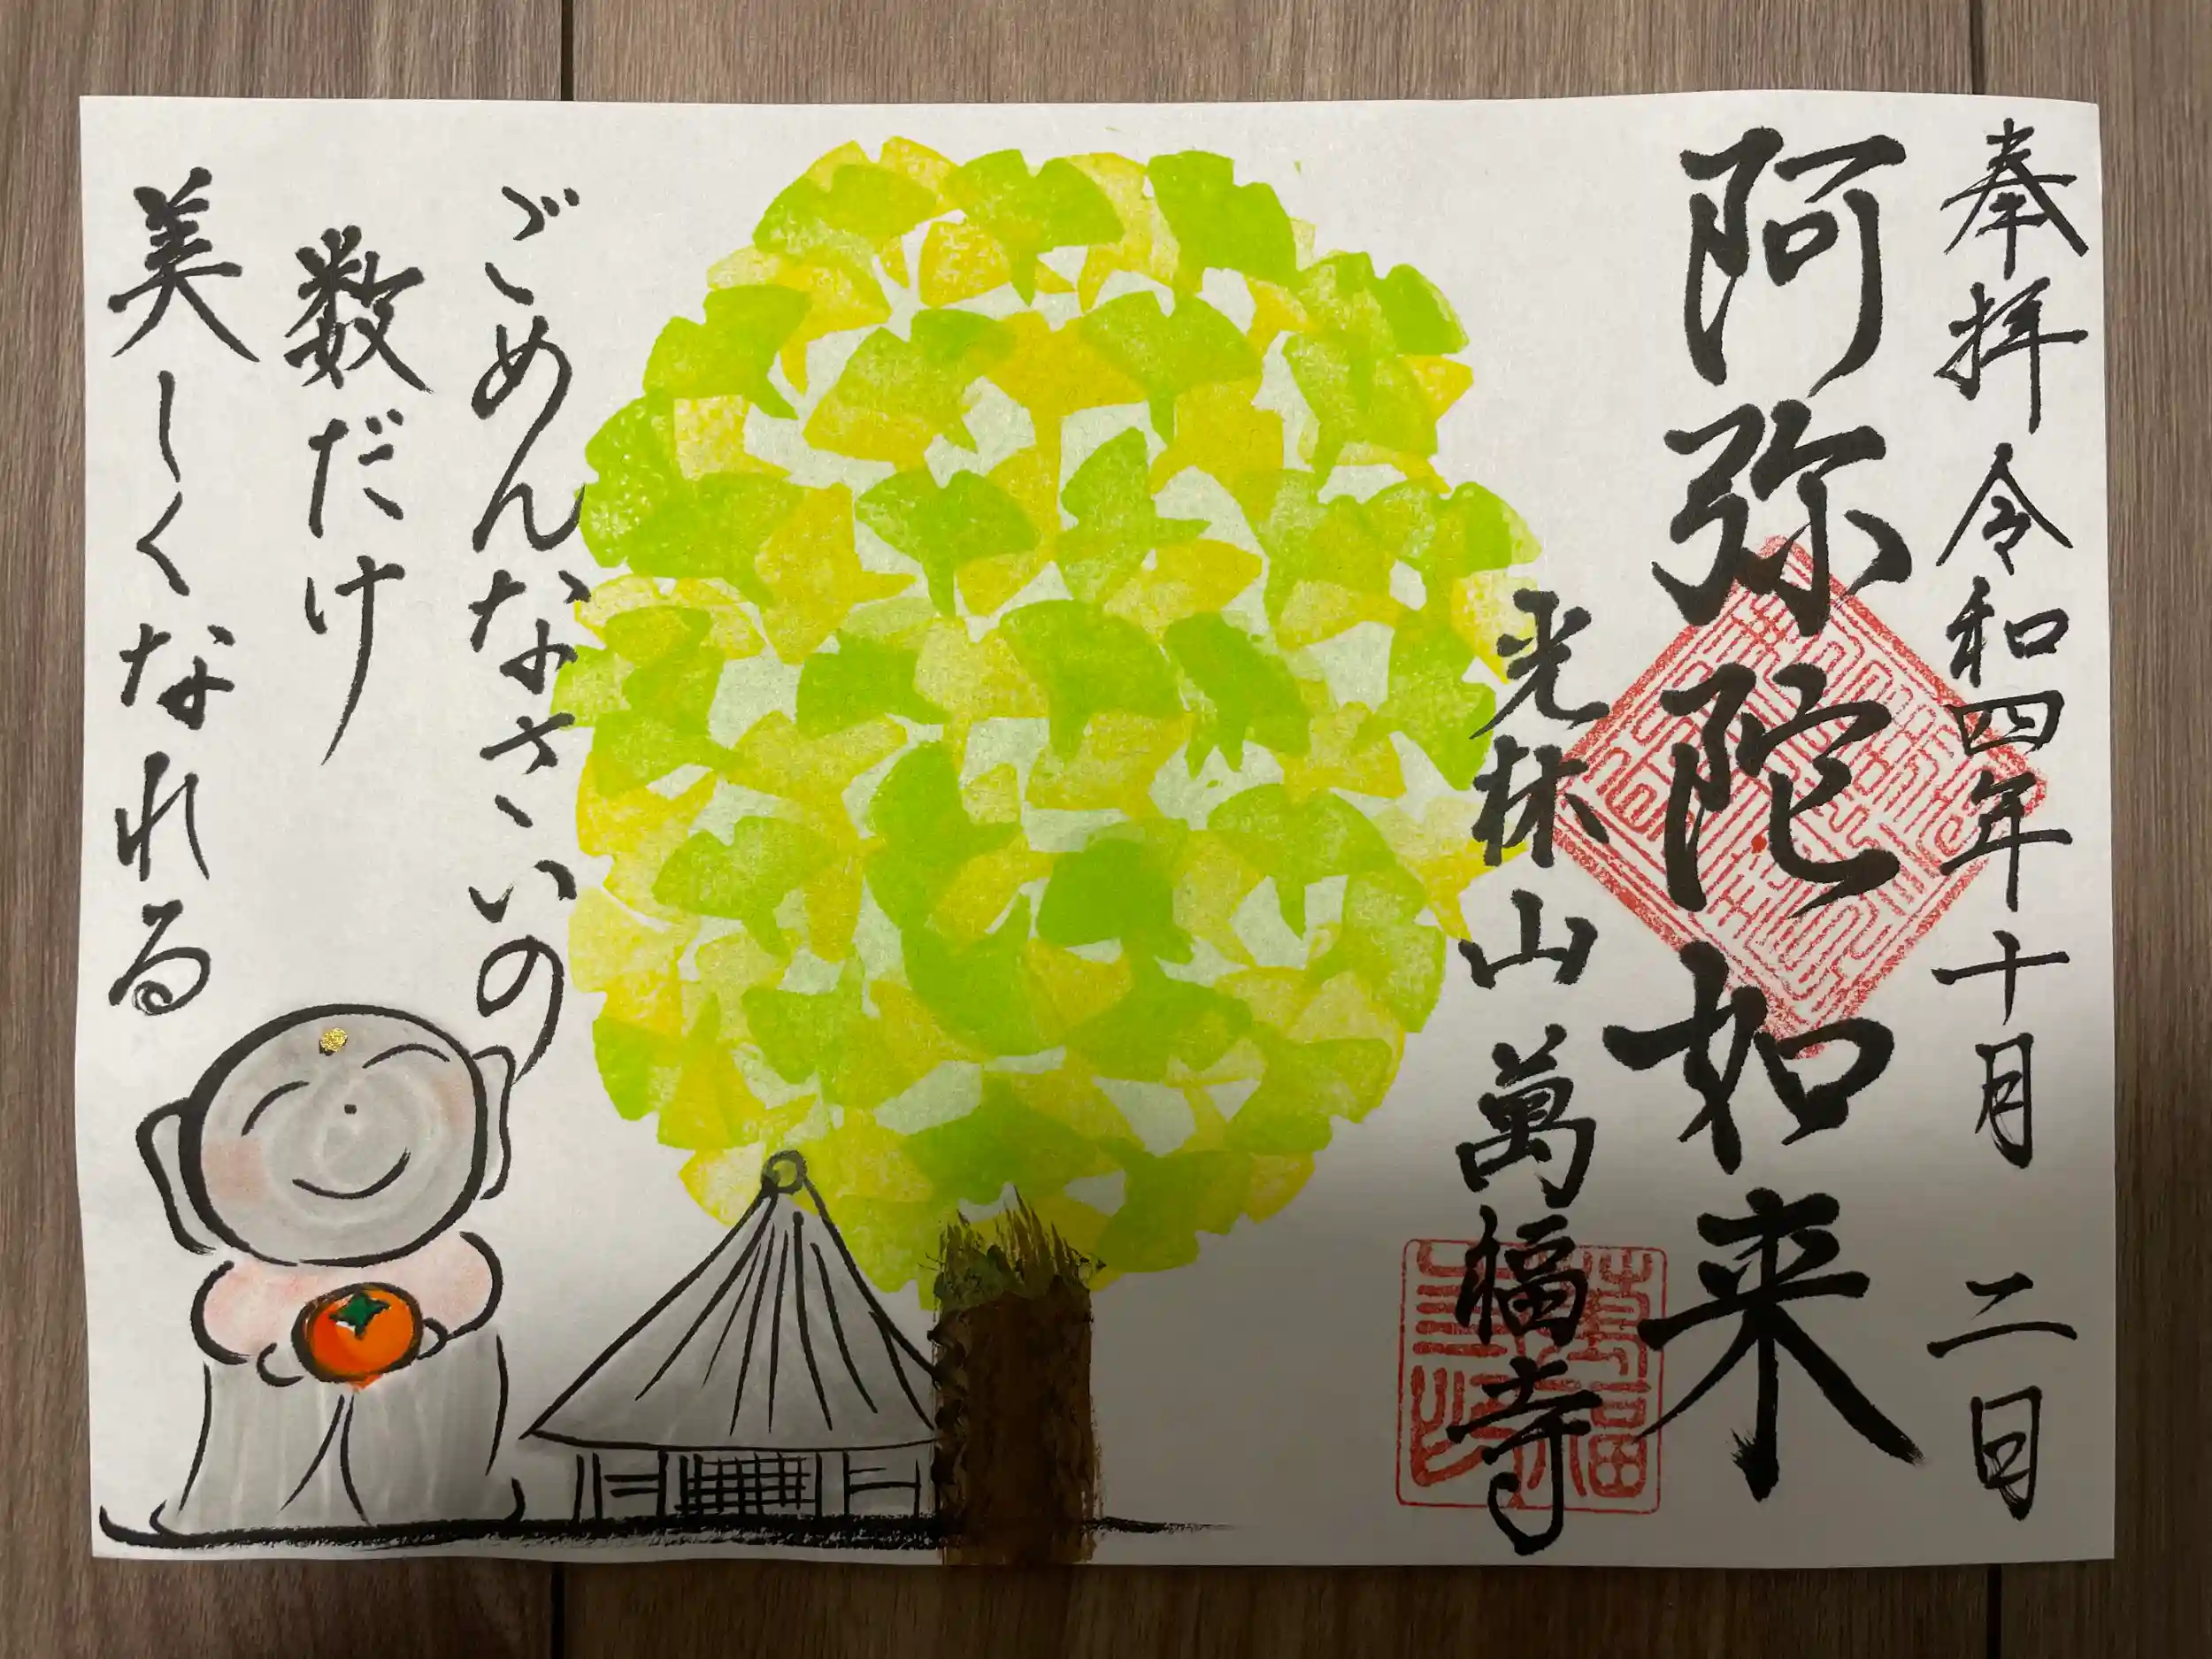 奉拝 令和四年十月二日
阿弥陀如来
光林山 萬福寺
ごめんなさいの
数だけ
美しくなれる